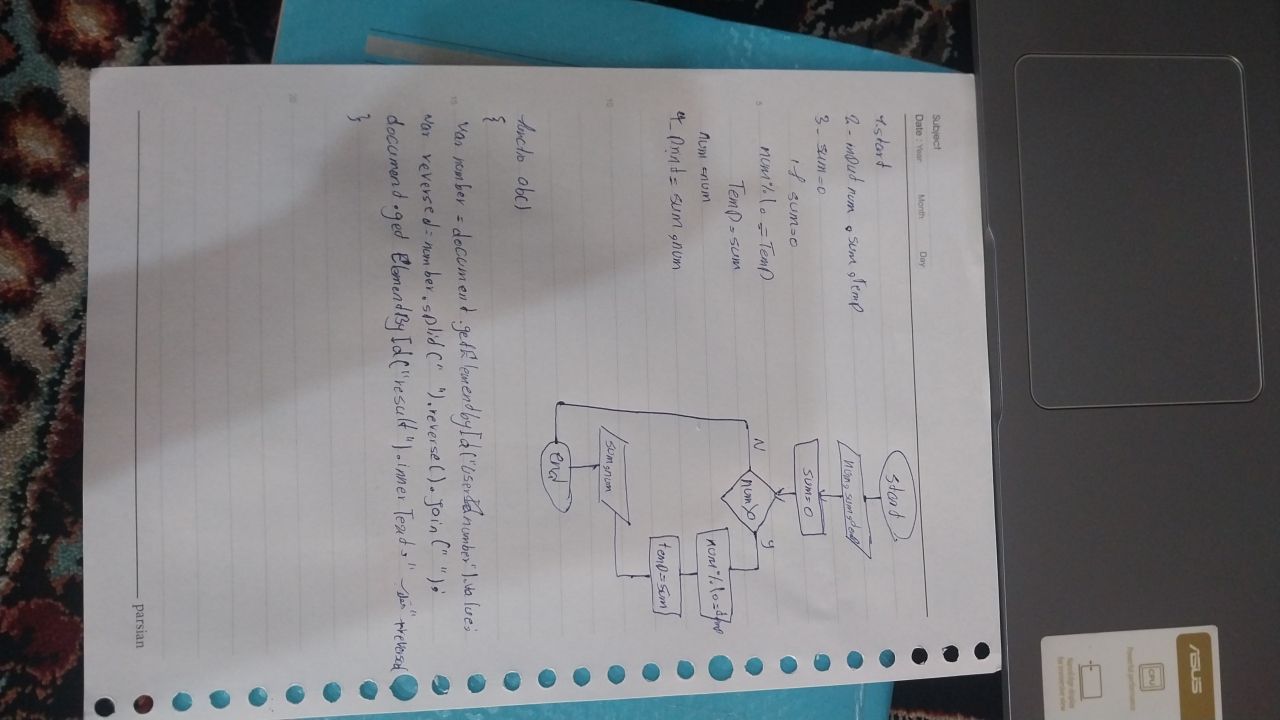 Subject
Date : Year Month Day
1. start
2 - input num , sum , temp
3 - sum = 0
if sum = 0
num % 10 = Temp
Temp = sum
num = num
4 - print = sum , num
start
num , sum , temp
sum = 0
num > 0
N
y
num % 10 = temp
temp = sum
sum , num
end
functio abc()
{
var number = document.getElementbyId("user number").value;
var reversed = number.split(" ").reverse().join(" ");
document.get ElementById("result").inner Text = " " + reversed
}
5
10
15
20
parsian
ASUS
CPU